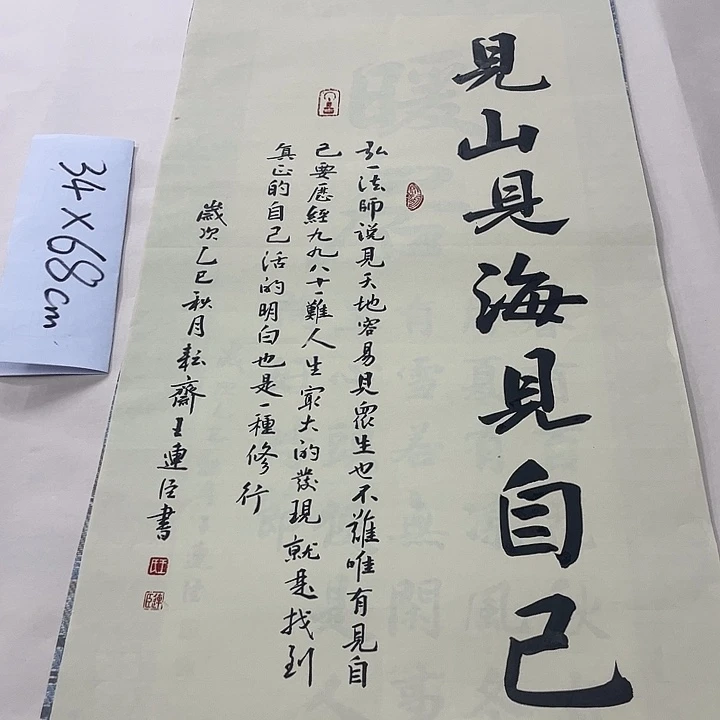 見山見海見自己
弘一法師说見天地容易見眾生也不難唯有見自
己要歷經九九八十一難人生最大的發現就是找到
真正的自己活的明白也是一種修行
歲次乙巳秋月耘齋王連臣書
34×68cm